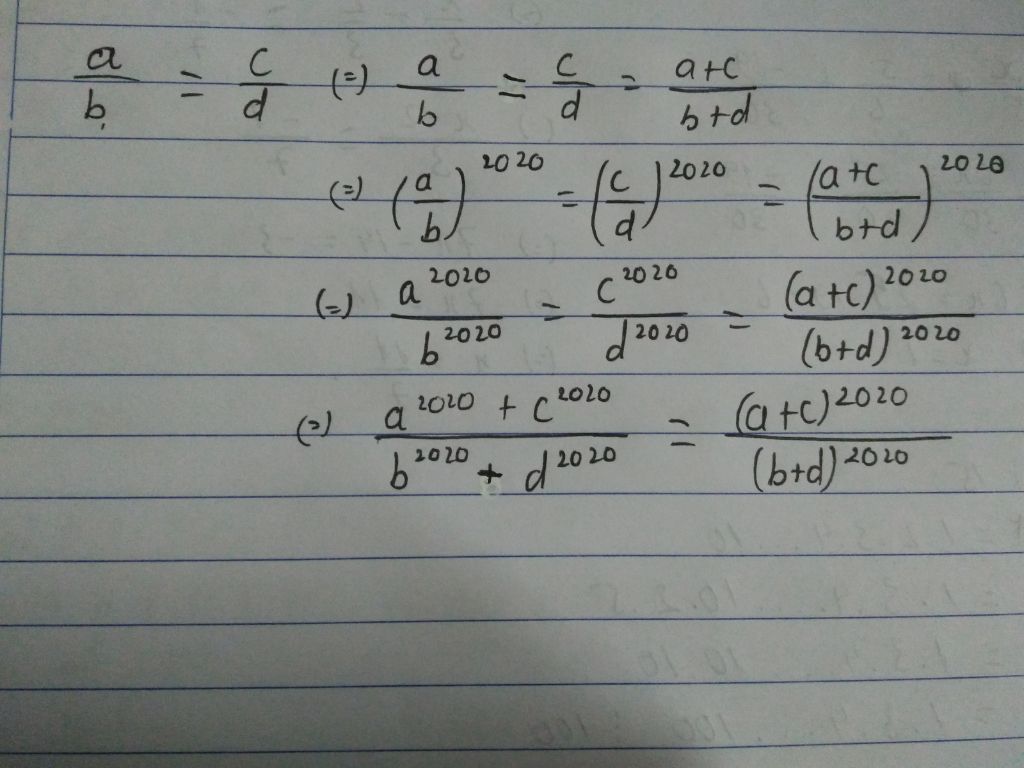 a/b = c/d (=) a/b = c/d = a+c/b+d
(=) (a/b)^2020 = (c/d)^2020 = (a+c/b+d)^2020
(=) a^2020/b^2020 = c^2020/d^2020 = (a+c)^2020/(b+d)^2020
(=) a^2020 + c^2020/b^2020 + d^2020 = (a+c)^2020/(b+d)^2020